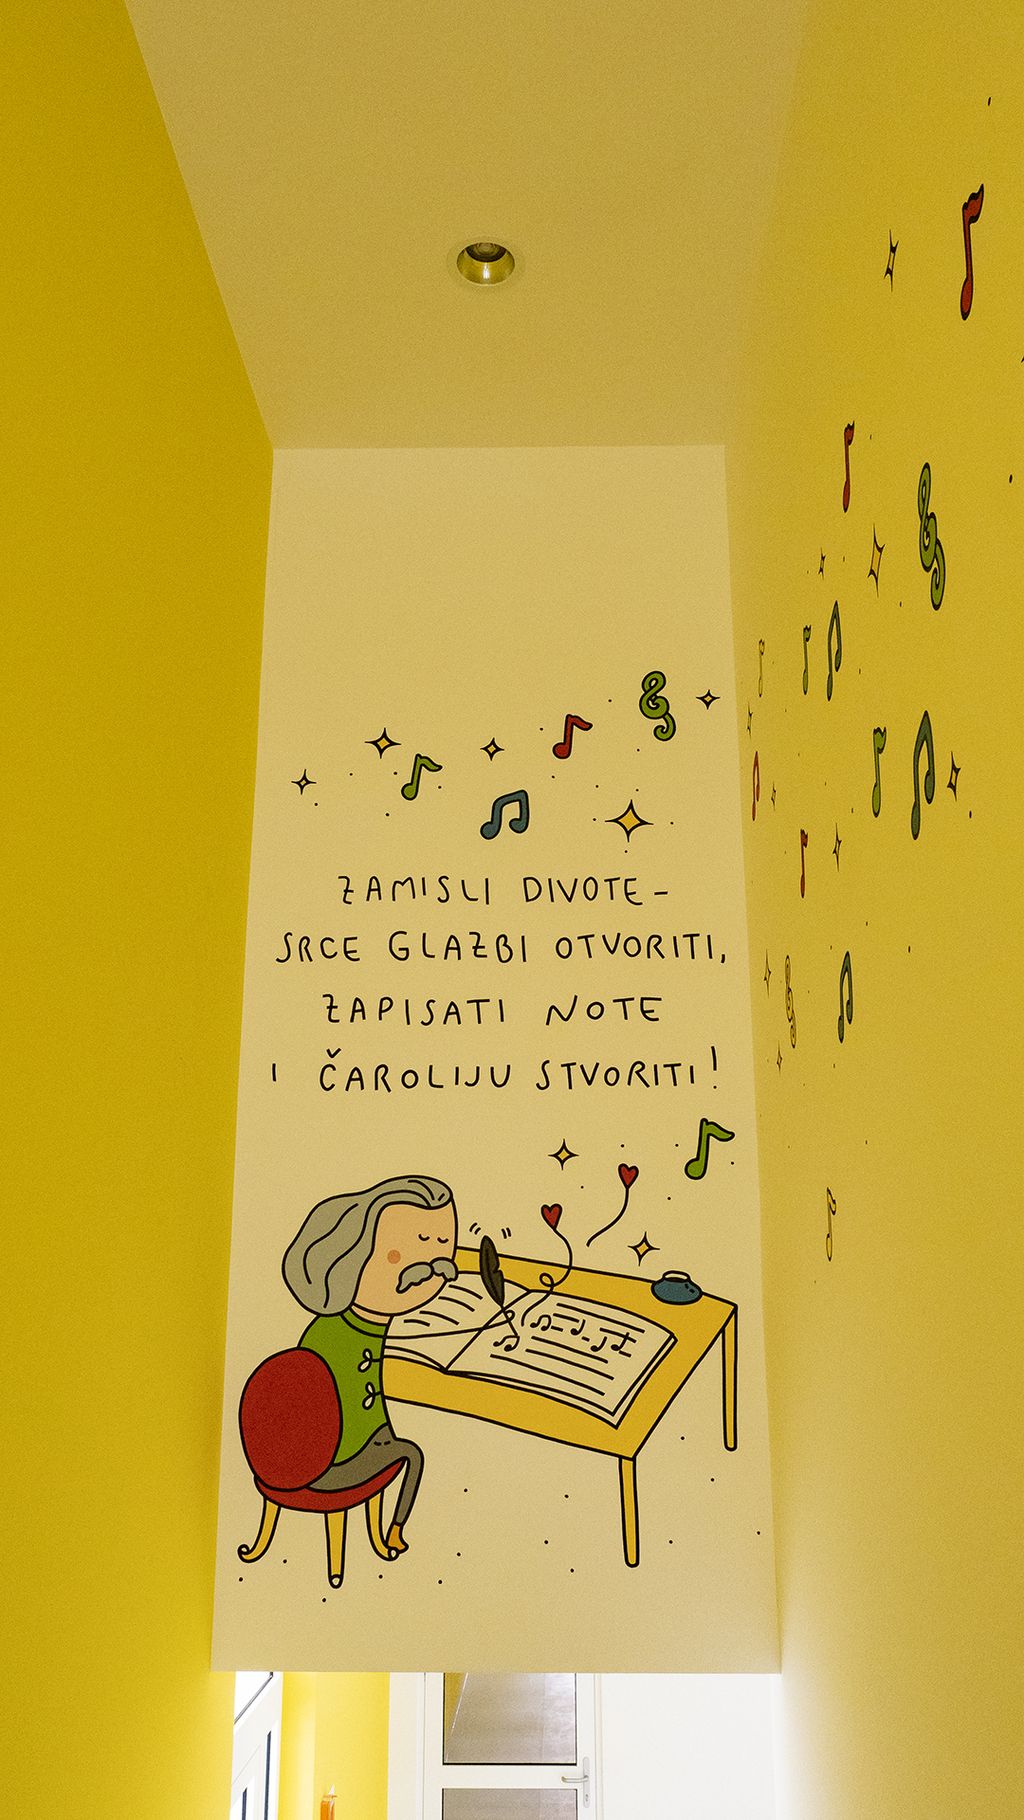 ZAMISLI DIVOTE -
SRCE GLAZBI OTVORITI,
ZAPISATI NOTE
I ČAROLIJU STVORITI!